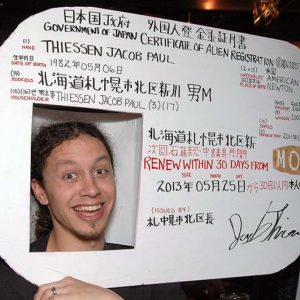 日本国政府 外国人登録証明書
GOVERNMENT OF JAPAN CERTIFICATE OF ALIEN REGISTRATION
(1) NAME THIESSEN JACOB PAUL
生年月日 DATE OF BIRTH 1982年05月06日
NATIONALITY AMERICAN
PLACE OF NEWTON
ADDRESS 北海道札幌市北区新川 男M
HOUSEHOLDER THIESSEN JACOB PAUL
北海道札幌市北区新
RENEW WITHIN 30 DAYS FROM
2013年05月25日から30日以内
(ISSUED BY)
札幌市北区長